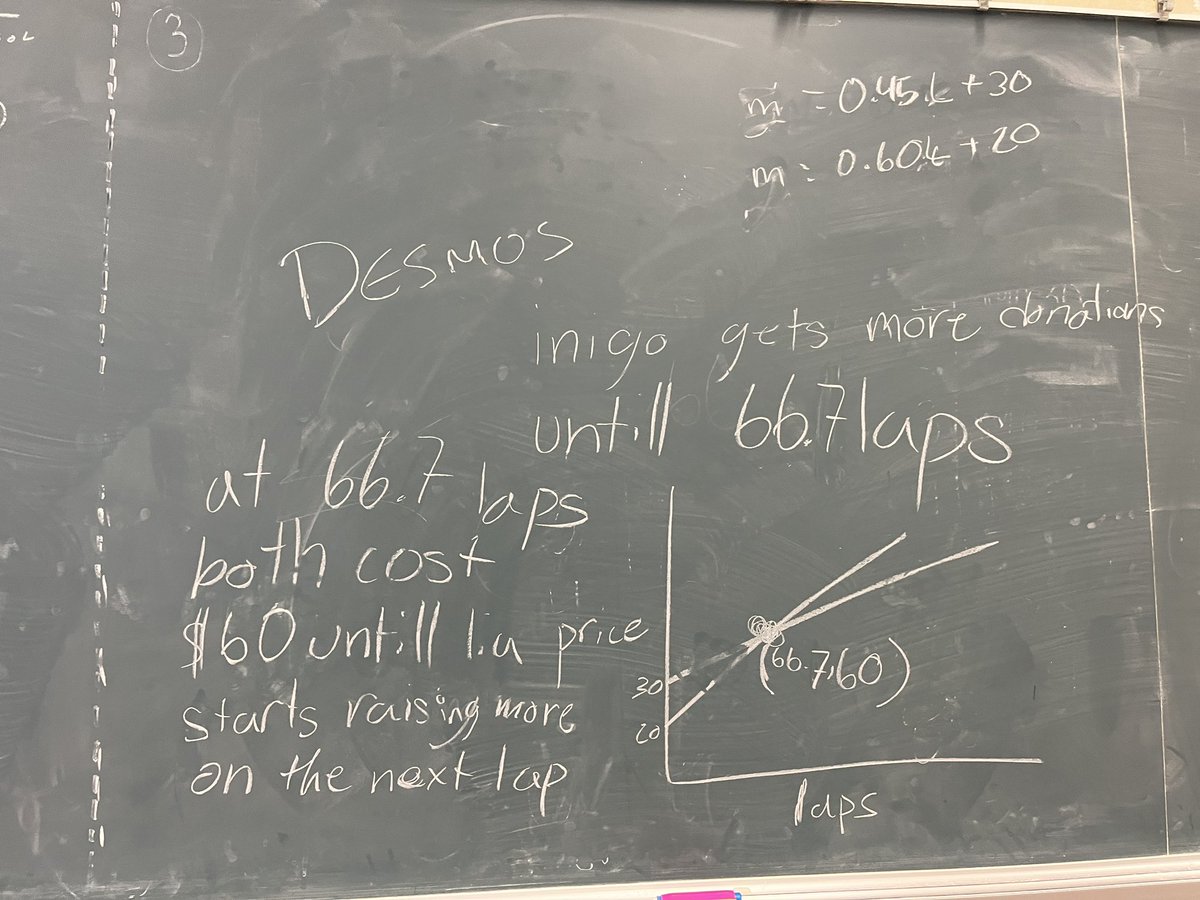 3
m = 0.45L + 30
m = 0.60L + 20
DESMOS
inigo gets more donations
untill 66.7 laps
at 66.7 laps
both cost
$60 untill lia price
starts raising more
on the next lap
30
20
(66.7,60)
laps